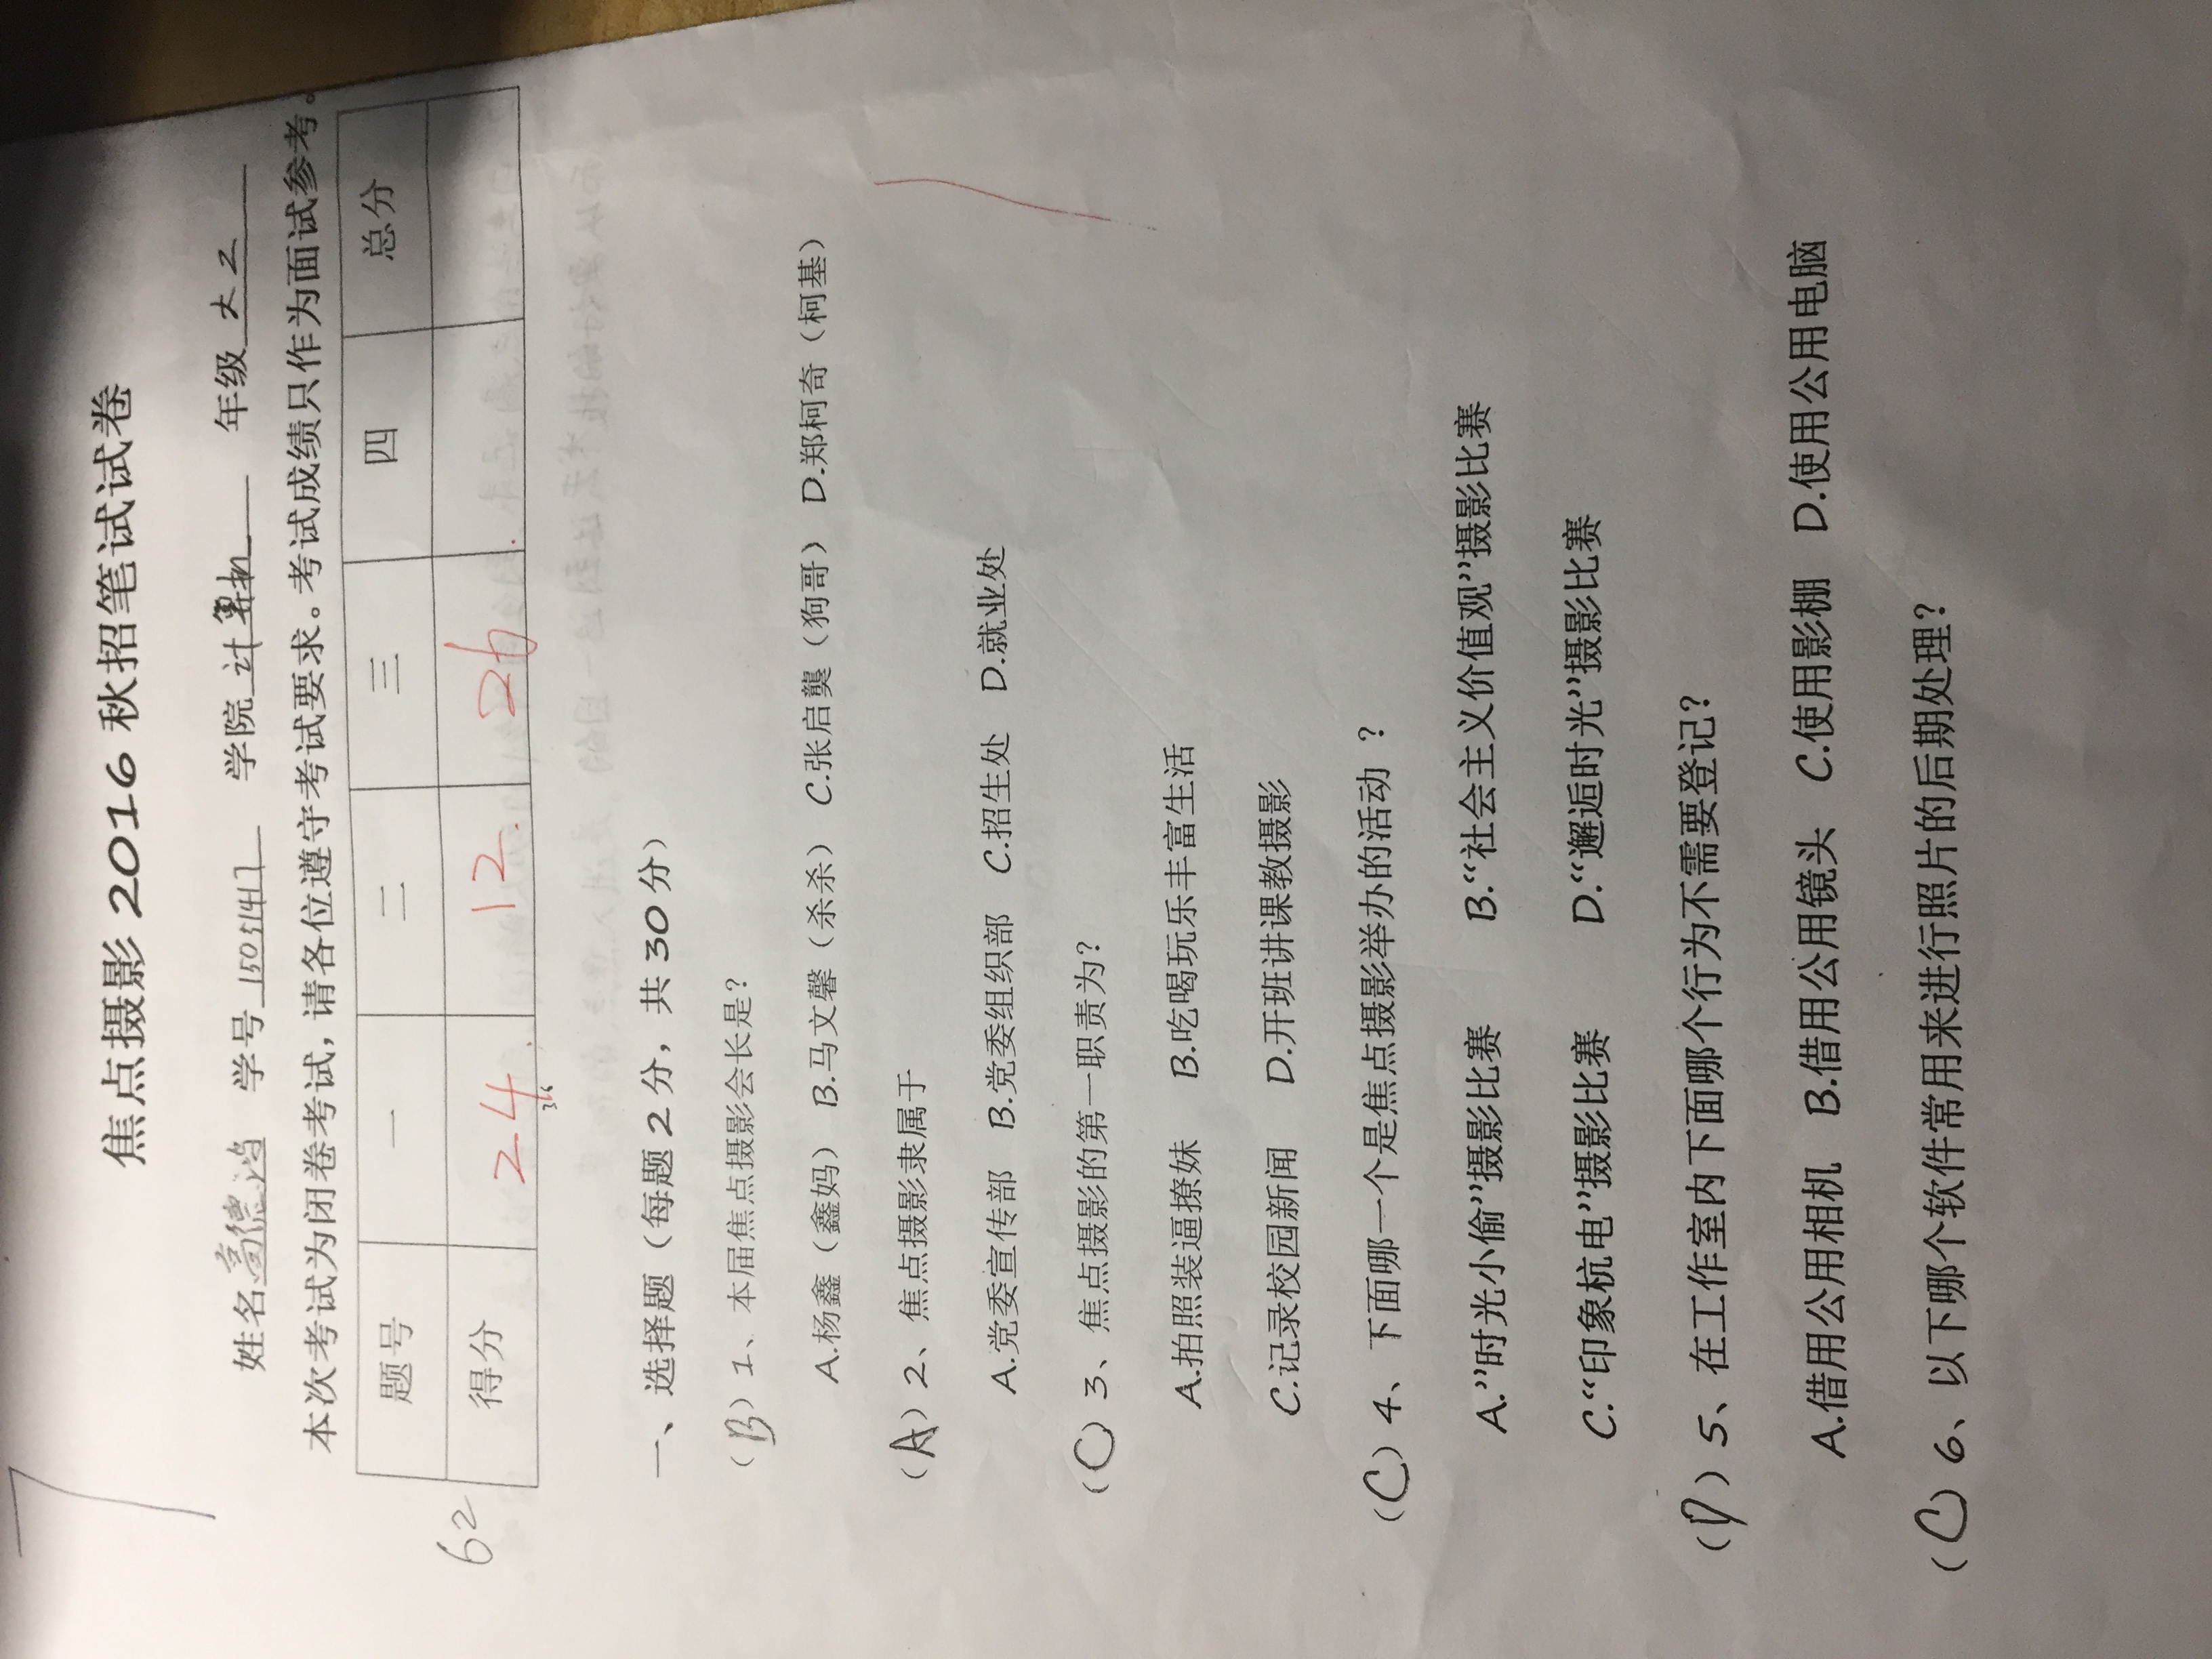 7
焦点摄影 2016 秋招笔试试卷
姓名高德鸿 学号 15051417 学院 计算机 年级 大二
本次考试为闭卷考试,请各位遵守考试要求。考试成绩只作为面试参考。
题号 一 二 三 四 总分
62 得分 24. 12. 26.
36
一、选择题（每题 2 分，共 30 分）
（B）1、本届焦点摄影会长是？
A.杨鑫（鑫妈） B.马文馨（杀杀） C.张启龑（狗哥） D.郑柯奇（柯基）
（A）2、焦点摄影隶属于
A.党委宣传部 B.党委组织部 C.招生处 D.就业处
（C）3、焦点摄影的第一职责为？
A.拍照装逼撩妹 B.吃喝玩乐丰富生活
C.记录校园新闻 D.开班讲课教摄影
（C）4、下面哪一个是焦点摄影举办的活动 ？
A.”时光小偷”摄影比赛 B.“社会主义价值观”摄影比赛
C.“印象杭电”摄影比赛 D.“邂逅时光”摄影比赛
（D）5、在工作室内下面哪个行为不需要登记？
A.借用公用相机 B.借用公用镜头 C.使用影棚 D.使用公用电脑
（C）6、以下哪个软件常用来进行照片的后期处理？